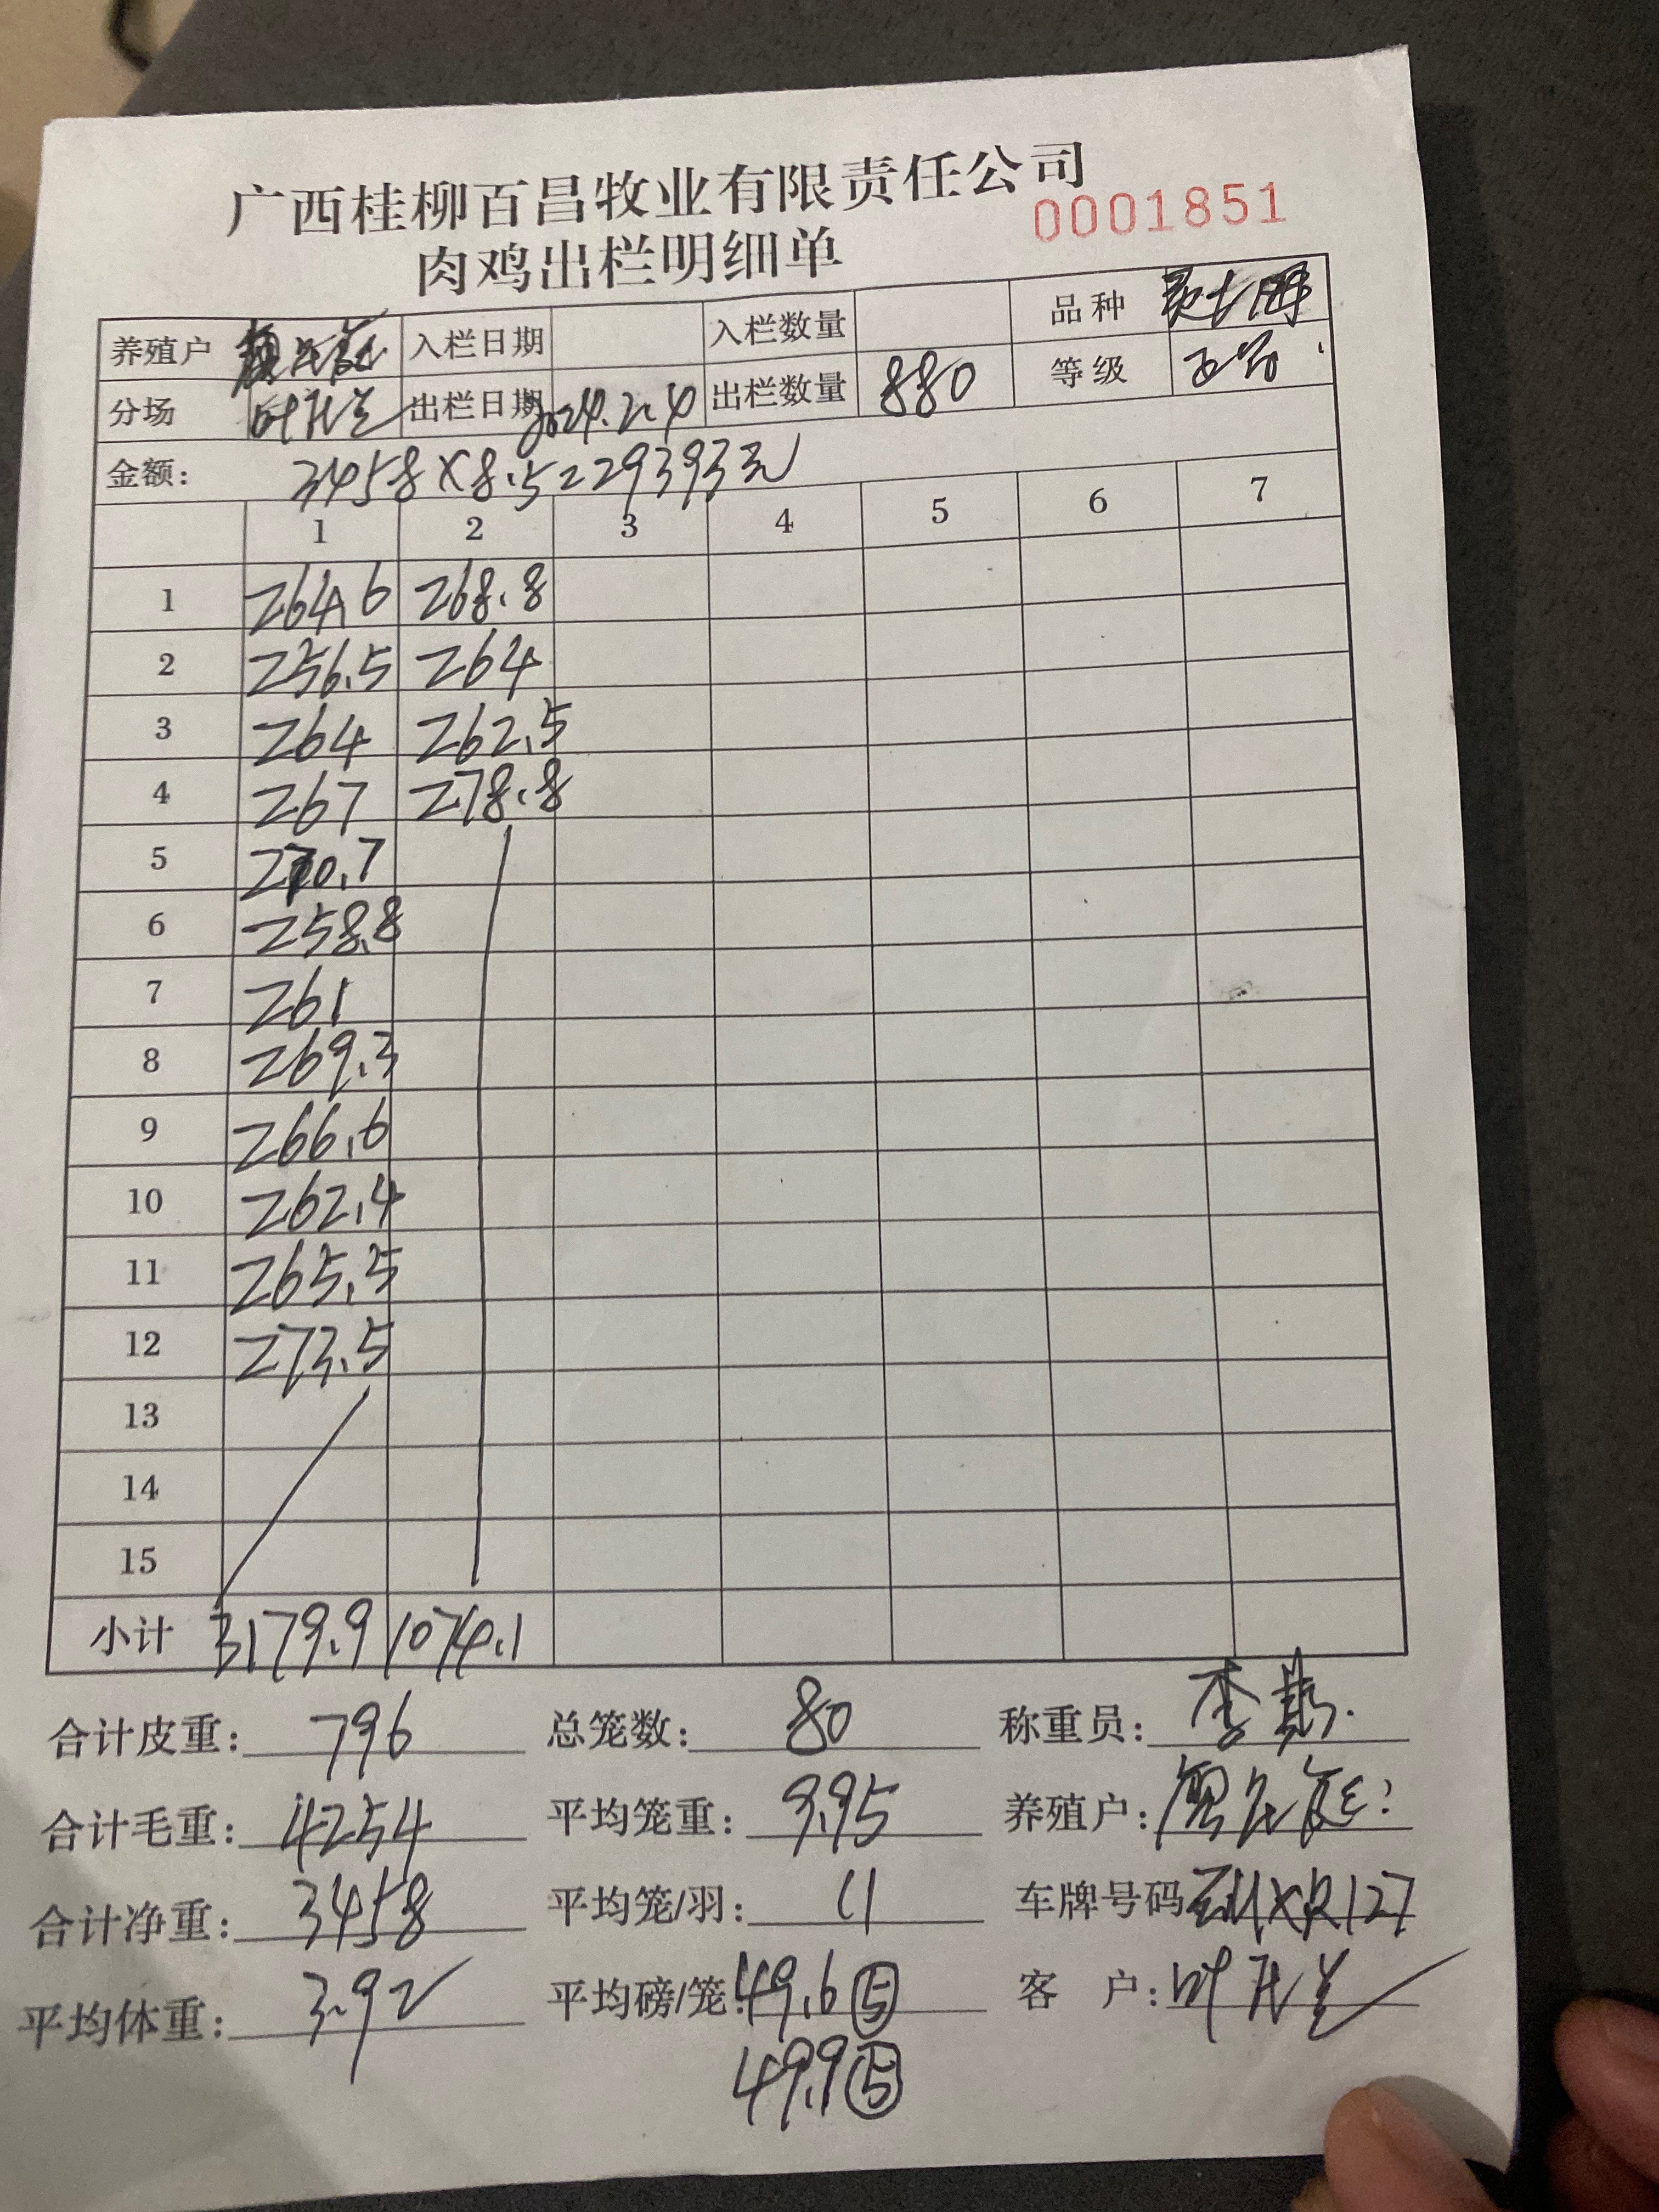 广西桂柳百昌牧业有限责任公司
0001851
肉鸡出栏明细单
养殖户 入栏日期 入栏数量 品种
分场 叶孔兰 出栏日期 2024.2.4 出栏数量 880 等级
金额: 3458×8.5=29393元
1 2 3 4 5 6 7
1 264.6 268.8
2 256.5 264
3 264 262.5
4 267 278.8
5 270.7
6 258.8
7 261
8 269.3
9 266.6
10 262.4
11 265.5
12 273.5
13
14
15
小计 3179.9 1074.1
合计皮重: 796 总笼数: 80 称重员: 李
合计毛重: 4254 平均笼重: 9.95 养殖户:
合计净重: 3458 平均笼/羽: 11 车牌号码
平均体重: 3.92 平均磅/笼: 49.6⑤ 客 户:
49.9⑤